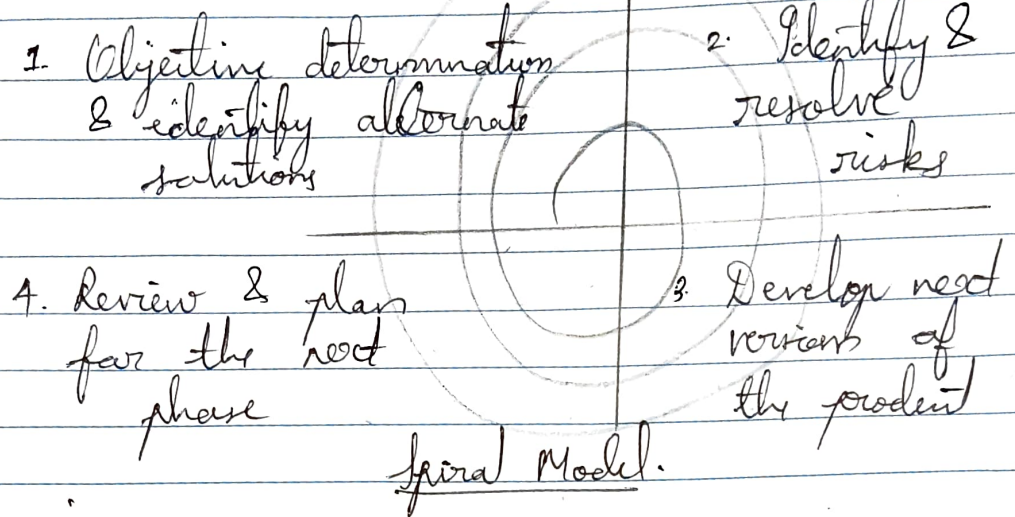 1. Objective determination
& identify alternate
solutions
2. Identify &
resolve
risks
4. Review & plan
for the next
phase
3. Develop next
version of
the product
Spiral Model.